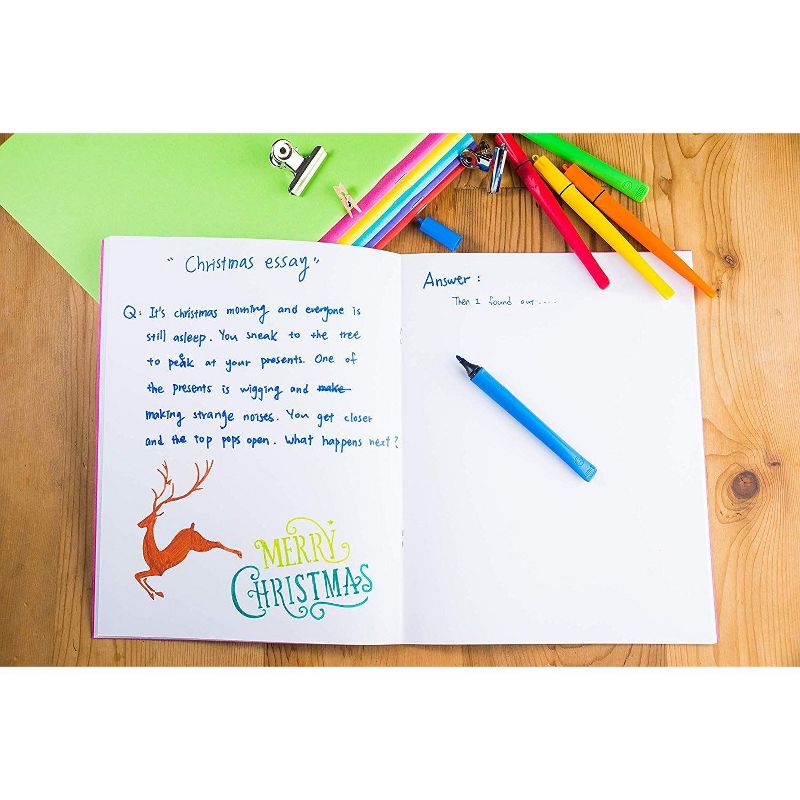 "Christmas essay"
Q: It's christmas morning and everyone is
still asleep. You sneak to the tree
to peak at your presents. One of
the presents is wigging and make
making strange noises. You get closer
and the top pops open. What happens next?
MERRY
CHRISTMAS
Answer:
Then I found out....